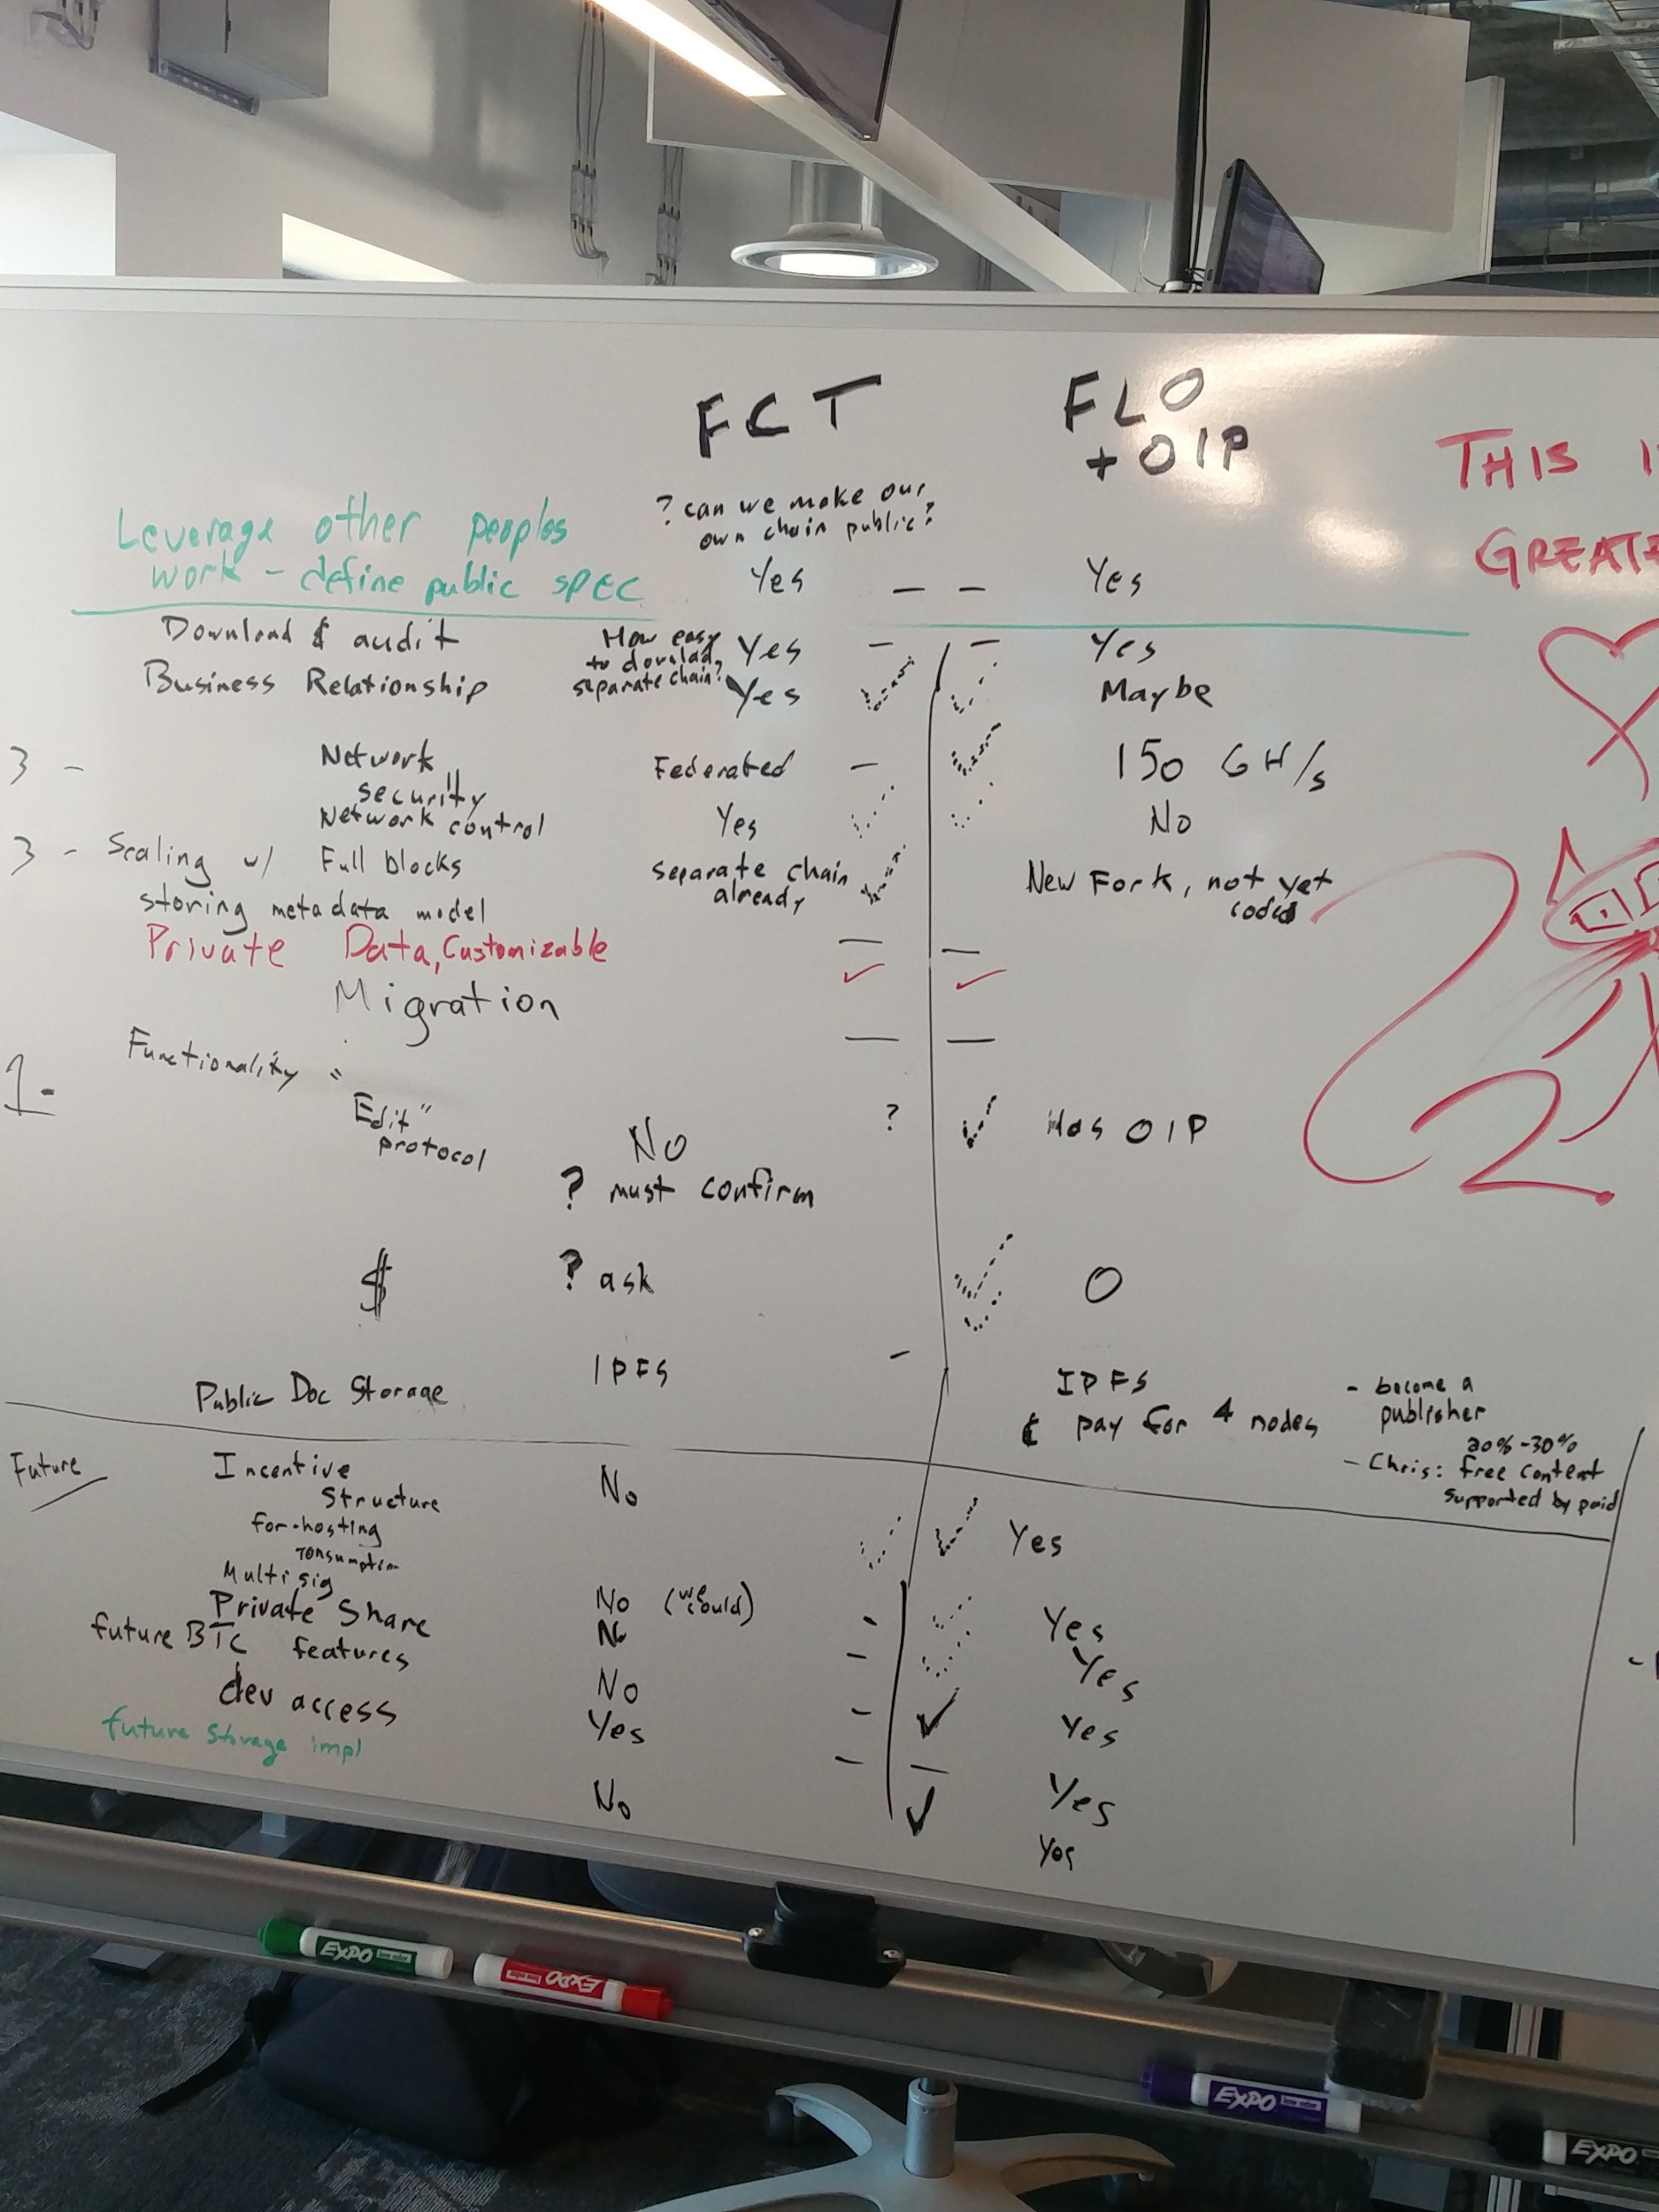 FCT
FLO
+ OIP
THIS I
GREATE
Leverage other peoples
work - define public SPEC
? can we make our
own chain public?
Yes — — Yes
Download & audit
How easy
to downlad
separate chain?
Yes — — Yes
Business Relationship
Yes ✓ ✓ Maybe
3 - Network
security
Federated — ✓ 150 GH/s
Network control
Yes ✓ ✓ No
3 - Scaling w/ Full blocks
storing metadata model
separate chain
already
✓
New Fork, not yet
coded
Private Data, Customizable
— —
✓ ✓
Migration
— —
1-
Functionality "
Edit"
protocol
No
? must confirm
? ✓ Has OIP
$
? ask
✓ 0
Public Doc Storage
IPFS -
IPFS
& pay for 4 nodes
- become a
publisher
20% -30%
- Chris: free content
supported by paid
2
Future
Incentive
Structure
for-hosting
consumption
No
✓ ✓ Yes
Multi sig
No (we
could)
- ✓ Yes
Private Share
No
- ✓ Yes
future BTC features
No
- ✓ Yes
dev access
Yes
- — Yes
future storage impl
No
✓ Yes
EXPO
EXPO
EXPO
EXPO